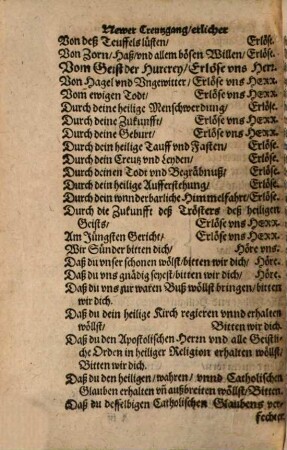 Newer Creutzgang/erlicher
Von deß Teuffels lüsten/ Erlöse.
Von Zorn/Haß/vnd allem bösen Willen/Erlöse.
Vom Geist der Hurerey/Erlöse vns Herr.
Von Hagel vnd Vngewitter/Erlöse vns HERR.
Vom ewigen Todt/ Erlöse.
Durch deine heilige Menschwerdung/ Erlöse.
Durch deine Zukunfft/ Erlöse vns HERR.
Durch deine Geburt/ Erlöse vns HERR.
Durch dein heilige Tauff vnd Fasten/ Erlöse.
Durch dein Creutz vnd Leyden/ Erlöse.
Durch deinen Tod vnd Begräbnuß/ Erlöse.
Durch dein heilige Aufferstehung/ Erlöse.
Durch dein wunderbarliche Himmelfahrt/Erlöse.
Durch die Zukunfft deß Trösters deß heiligen
Geists/ Erlöse vns HERR.
Am Jüngsten Gericht/ Erlöse vns HERR.
Wir Sünder bitten dich/ Höre vns.
Daß du vnser schonen wölst/bitten wir dich/ Höre.
Daß du vns gnädig seyest/bitten wir dich/ Höre.
Daß du vns zur waren Buß wöllst bringen/bitten
wir dich.
Daß du dein heilige Kirch regieren vnnd erhalten
wöllst/ Bitten wir dich.
Daß du den Apostolischen Herrn vnd alle Geistli-
che Orden in heiliger Religion erhalten wöllst/
Bitten wir dich.
Daß du den heiligen/wahren/ vnnd Catholischen
Glauben erhalten vñ außbreiten wöllst/Bitten.
Daß du desselbigen Catholischen Glaubens ver-
fechter